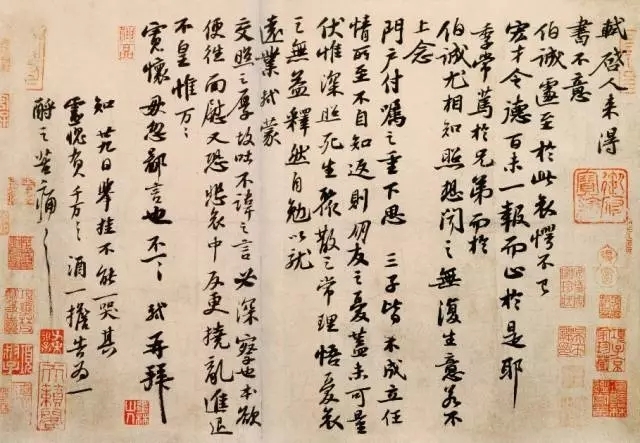 軾啓人来得
書不意
伯誠遽至於此哀愕不已
宏才令德百未一報而止於是耶
季常篤於兄弟而於
伯誠尤相知照想聞之無復生意若不
上念
門户付囑之重下思三子皆不成立任
情所至不自知返則朋友之憂蓋未可量
伏惟深照死生聚散之常理悟憂哀
之無益釋然自勉以就
遠業軾蒙
交照之厚故吐不諱之言必深察也本欲
便往面慰又恐悲哀中反更撓亂進退
不皇惟万〻
寬懷毋忽鄙言也不一〻軾再拜
知廿九日舉挂不能一哭其
靈愧負千万〻酒一擔告為一
酹之苦痛〻